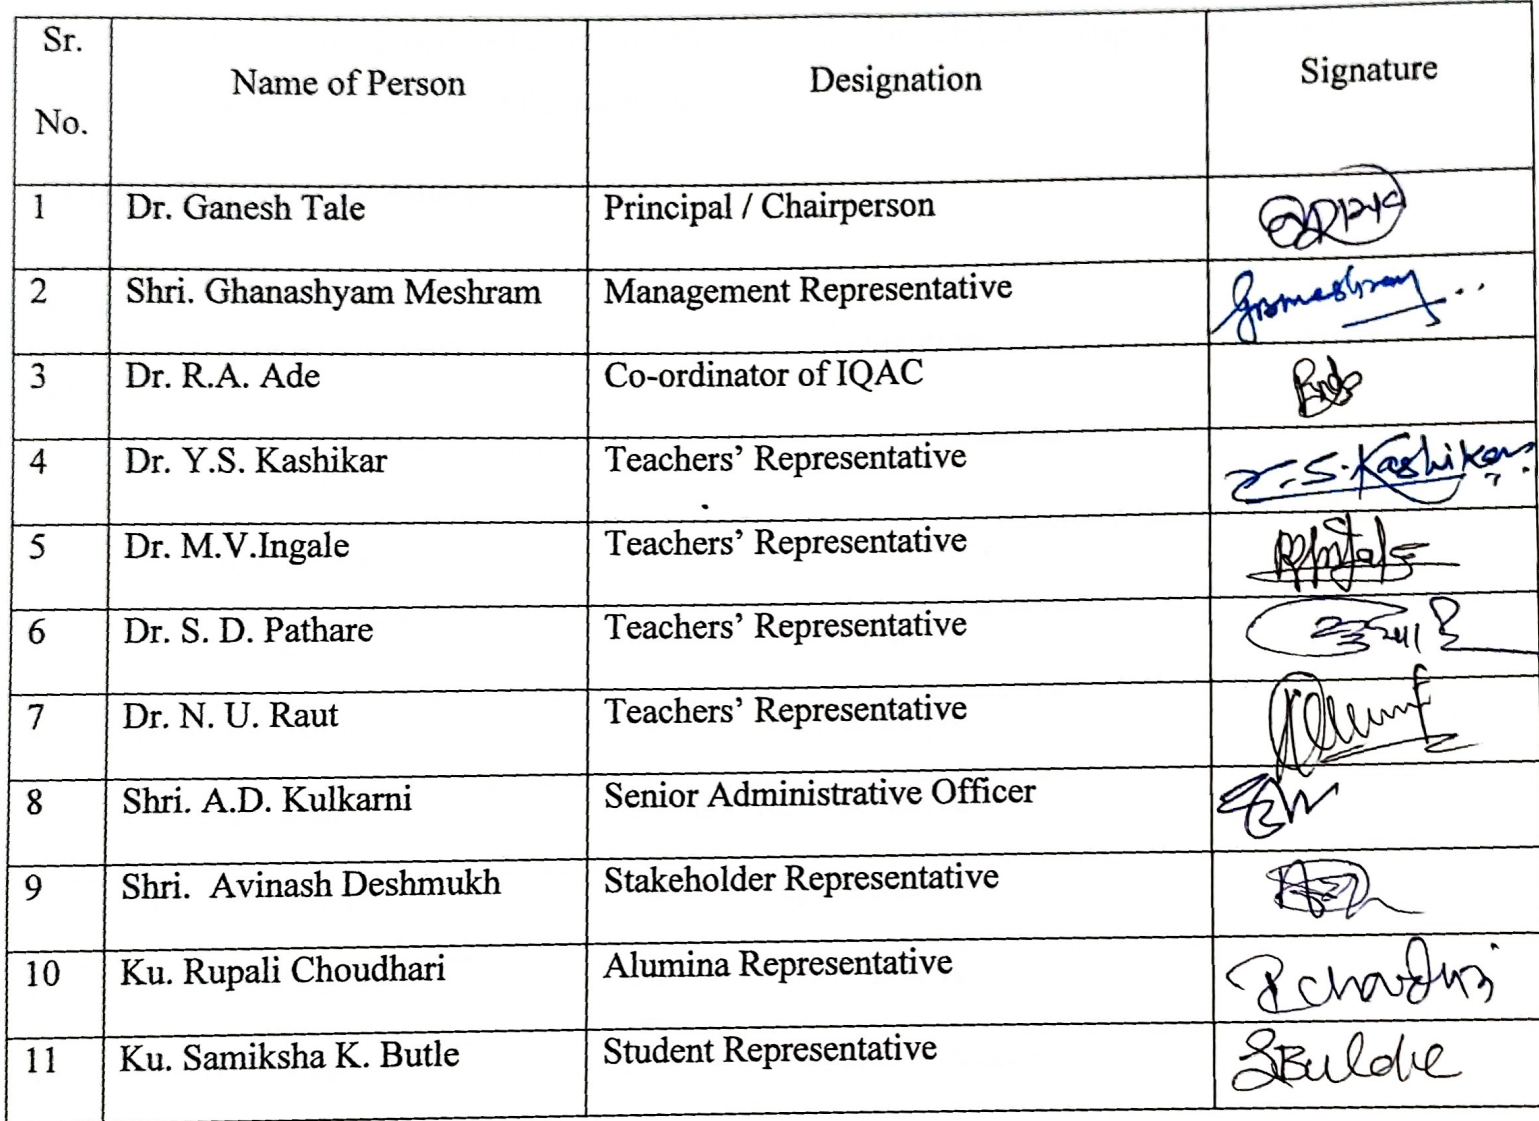 Sr. No. Name of Person Designation Signature
1 Dr. Ganesh Tale Principal / Chairperson
2 Shri. Ghanashyam Meshram Management Representative
3 Dr. R.A. Ade Co-ordinator of IQAC
4 Dr. Y.S. Kashikar Teachers’ Representative Y.S. Kashikar
5 Dr. M.V.Ingale Teachers’ Representative
6 Dr. S. D. Pathare Teachers’ Representative
7 Dr. N. U. Raut Teachers’ Representative
8 Shri. A.D. Kulkarni Senior Administrative Officer
9 Shri. Avinash Deshmukh Stakeholder Representative
10 Ku. Rupali Choudhari Alumina Representative
11 Ku. Samiksha K. Butle Student Representative